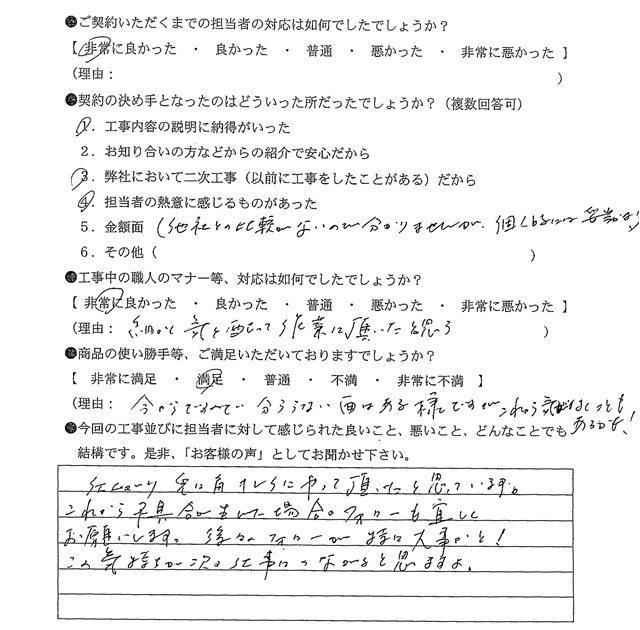 ●ご契約いただくまでの担当者の対応は如何でしたでしょうか？
【 非常に良かった ・ 良かった ・ 普通 ・ 悪かった ・ 非常に悪かった 】
（理由： ）
●契約の決め手となったのはどういった所だったでしょうか？（複数回答可）
1．工事内容の説明に納得がいった
2．お知り合いの方などからの紹介で安心だから
3．弊社において二次工事（以前に工事をしたことがある）だから
4．担当者の熱意に感じるものがあった
5．金額面（他社との比較がないので分かりませんが、個人的には妥当
6．その他（ ）
●工事中の職人のマナー等、対応は如何でしたでしょうか？
【 非常に良かった ・ 良かった ・ 普通 ・ 悪かった ・ 非常に悪かった 】
（理由： 細かく気を配って作業して頂いたと思う ）
●商品の使い勝手等、ご満足いただいておりますでしょうか？
【 非常に満足 ・ 満足 ・ 普通 ・ 不満 ・ 非常に不満 】
（理由： 今の所 分らない面はある様ですが これから気がつくことも
あるかも！
●今回の工事並びに担当者に対して感じられた良いこと、悪いこと、どんなことでも
結構です。是非、「お客様の声」としてお聞かせ下さい。
仕上り 見た目 キレイにやって頂いたと思っています。
これから不具合が生じた場合のフォローも宜しく
お願いします。後々のフォローが特に大事かと！
この気持ちが次の仕事につながると思いますよ。